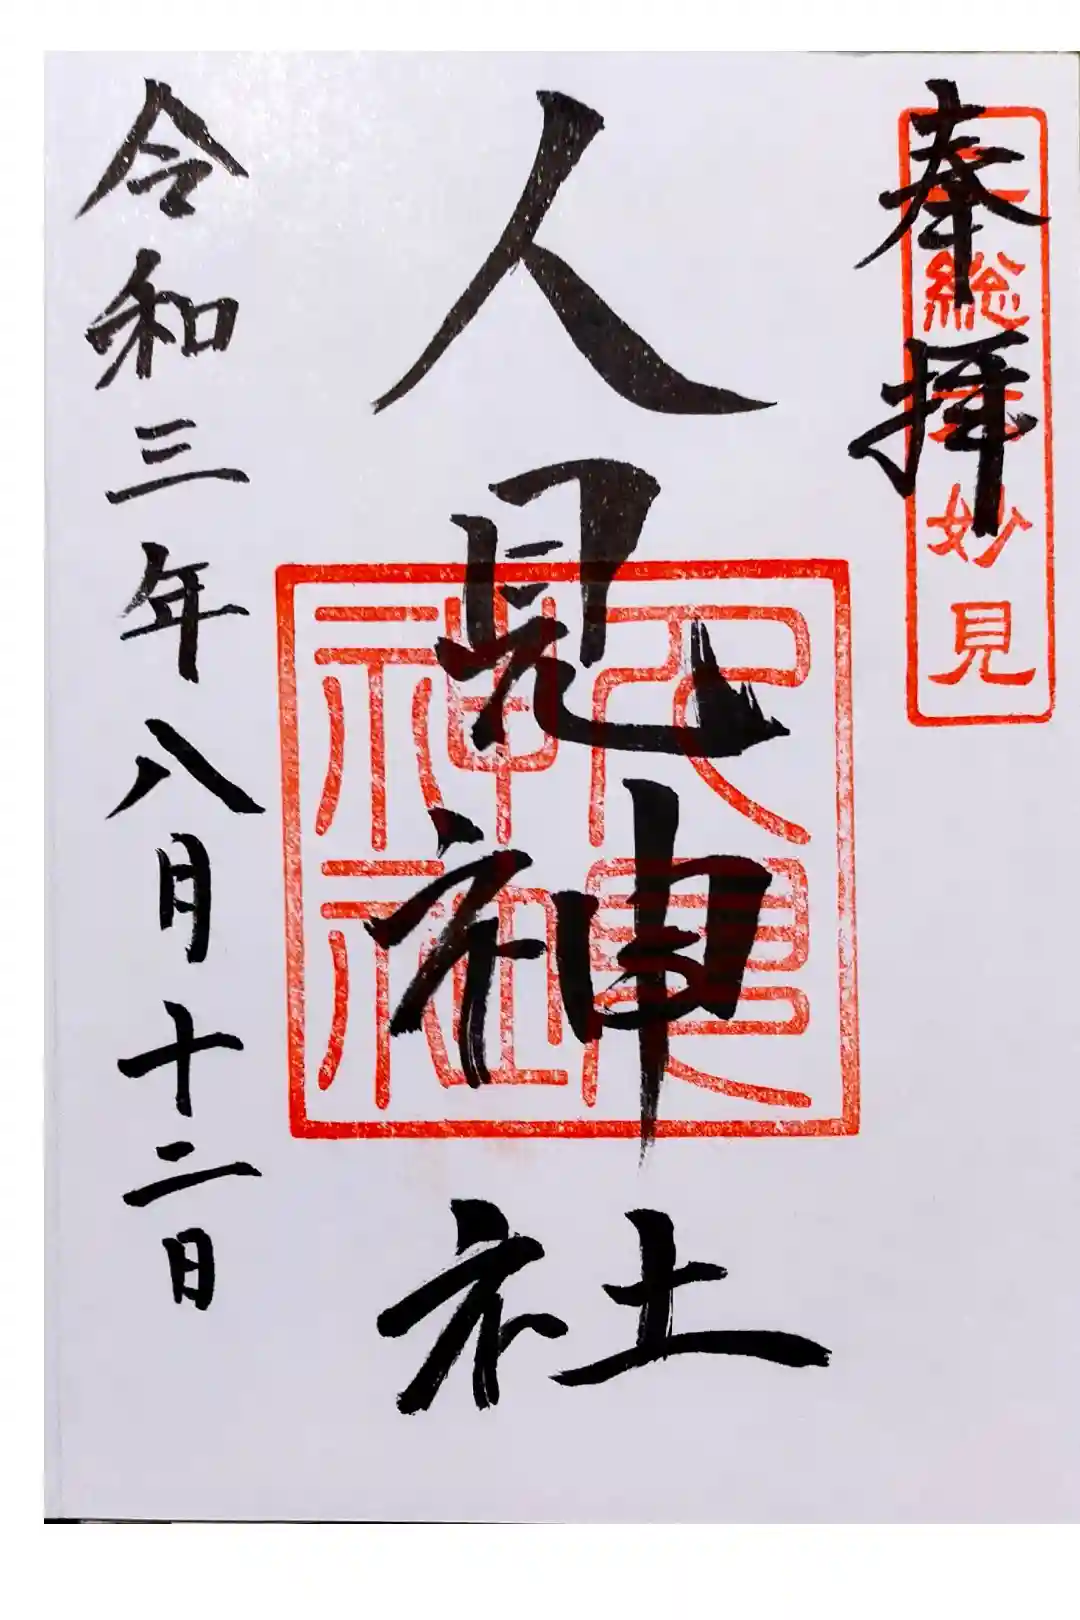 奉拝
総
妙見
人見神社
人見神社
令和三年八月十二日